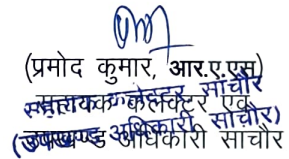 (प्रमोद कुमार, आर.ए.एस)
सहायक कलेक्टर एवं
उपखण्ड अधिकारी सांचौर
सहायक कलेक्टर सांचौर
(उपखण्ड अधिकारी, सांचौर)